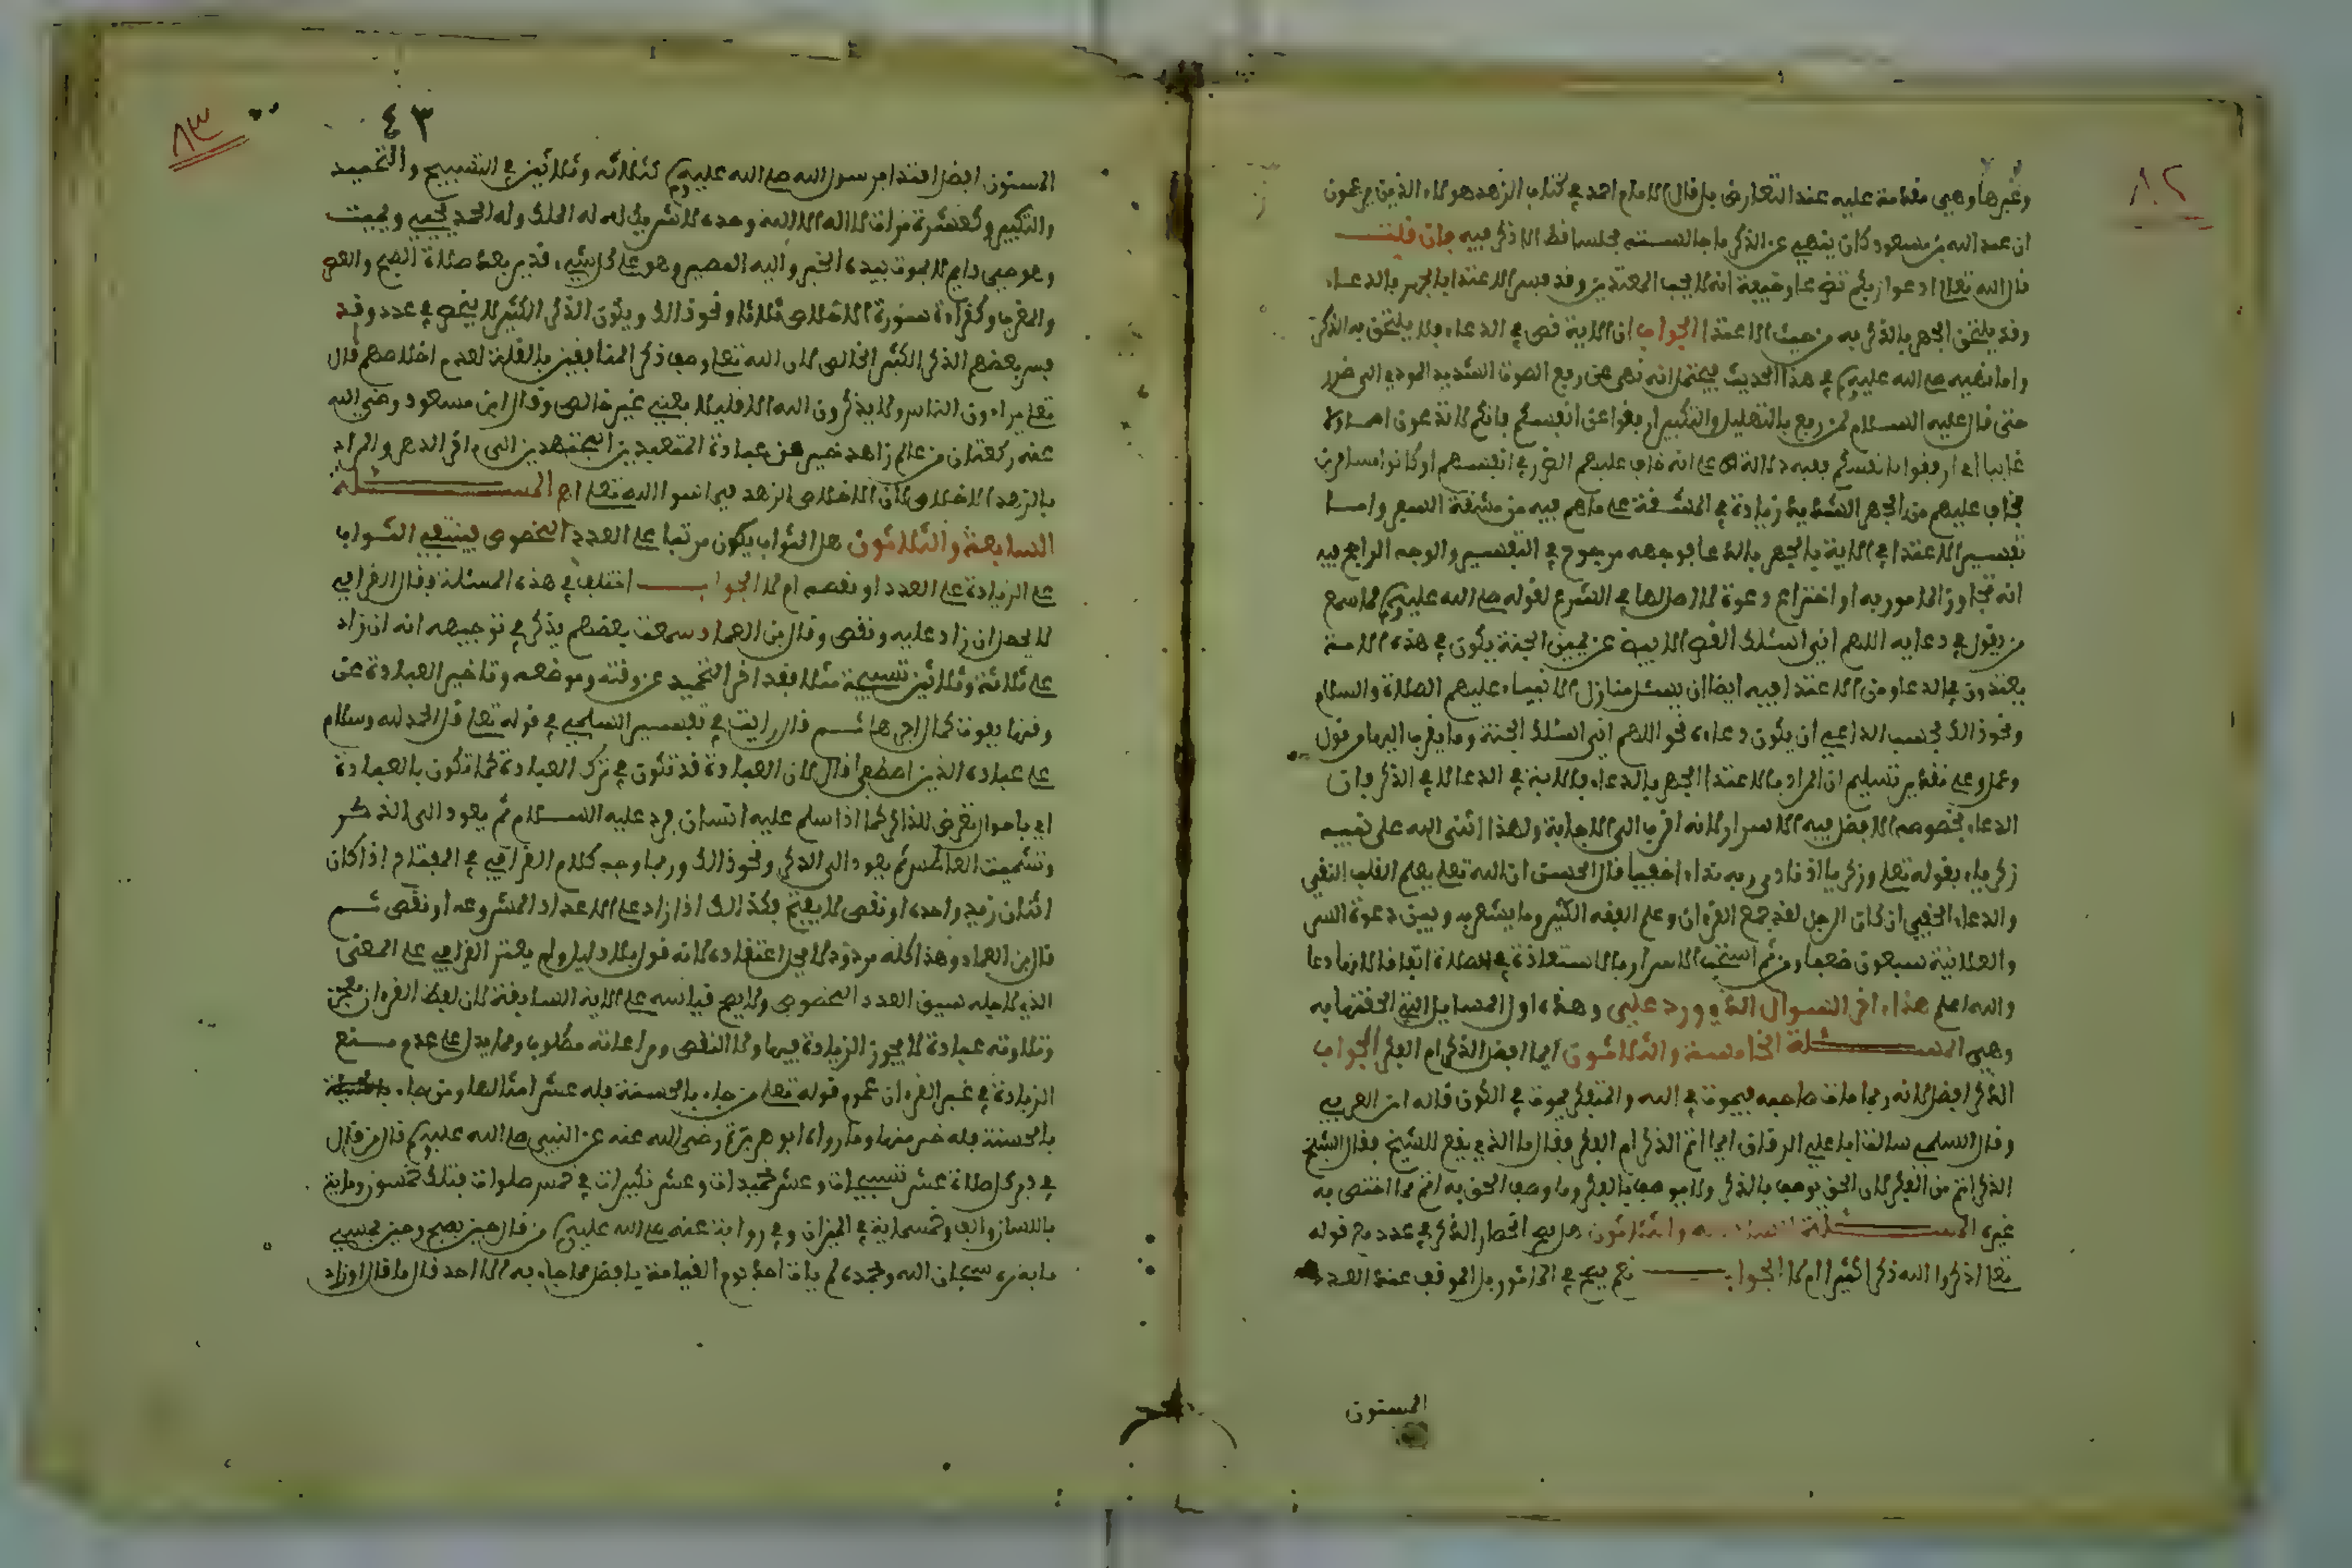 ٨٢
وغيرها وهي مقدمة عليه عند التعارض بل قال الامام احمد في كتاب الزهد هولاء الذين يزعمون
ان عبد الله بن مسعود كان ينهى عن الذكر ما جالسته مجلسا قط الا ذكر فيه فان قلت
قال الله تعلى ادعوا ربكم تضرعا وخيفة انه لا يحب المعتدين وقد فسر الاعتدا بالجهر بالدعاء
وقد يلتحق الجهر بالذكر به من حيث الاعتدا الجواب ان الاية نص في الدعاء فلا يلتحق به الذكر
واما نهيه صلى الله عليه وسلم في هذا الحديث فيحتمل انه نهى عن رفع الصوت الشديد المودي الى ضرر
حتى قال عليه السلام لمن رفع بالتهليل والتكبير اربعوا عن انفسكم فانكم لا تدعون اصم ولا
غايبا اي ارفقوا بانفسكم ففيه دلالة على انه خاف عليهم الضرر في انفسهم او كانوا مسافرين
فخاف عليهم من الجهر الشديد زيادة في المشقة على ما هم فيه من مشقة السفر واما
تفسير الاعتدا في الاية بالجهر بالدعا فوجهه مرجوح في التفسير والوجه الراجح فيه
انه تجاوز المامور به او اختراع دعوة لا اصل لها في الشرع لقوله صلى الله عليه وسلم لما سمع
من يقول في دعايه اللهم اني اسئلك القصر الابيض عن يمين الجنة يكون في هذه الامة
يعتدون في الدعاء ومن الاعتدا فيه ايضا ان يسئل منازل الانبياء عليهم الصلاة والسلام
ونحو ذلك فحسب الداعي ان يكون دعاءه نحو اللهم اني اسئلك الجنة وما يقرب اليها من قول
وعمل وعلى تقدير تسليم ان المراد بالاعتدا الجهر بالدعاء فالاية في الدعا لا في الذكر فان
الدعاء بخصوصه الافضل فيه الاسرار لانه اقرب الى الاجابة ولهذا اثنى الله على نبيه
زكرياء بقوله تعلى وزكريا اذ نادى ربه نداء خفيا قال الحسن ان الله تعلى يعلم القلب النقي
والدعاء الخفي ان كان الرجل لقد جمع القرءان وعلم الفقه الكثير وما يشعر به وبين دعوة السر
والعلانية سبعون ضعفا ومن ثم استحب الاسرار بالاستعاذة في الصلاة اتفاقا لانها دعا
والله اعلم هذا اخر السوال الذي ورد علي وهذه اول المسايل التي الحقتها به
وهي المسئلة الخامسة والثلاثون ايما افضل الذكر ام الفكر الجواب
الذكر افضل لانه ربما مات صاحبه فيموت في الله والمتفكر يموت في الكون قاله ابن العربي
وقال السلمي سالت ابا علي الرقاق ايما اتم الذكر ام الفكر فقال ما الذي يقع للشيخ فقال الشيخ
الذكر اتم من الفكر لان الحق يوصف بالذكر ولا يوصف بالفكر وما وصف الحق به اتم مما اختص به
غيره المسئلة السادسة والثلاثون هل يصح انحصار الذكر في عدد مع قوله
تعلى اذكروا الله ذكرا كثيرا ام لا الجواب نعم يصح في الماثور بل الوقوف عند العدد
المسنون
٨٣
٤٣
المسنون افضل اقتدا برسول الله صلى الله عليه وسلم كثلاثة وثلاثين في التسبيح والتحميد
والتكبير وكعشرة مرات لا اله الا الله وحده لا شريك له له الملك وله الحمد يحيي ويميت
وهو حي دايم لا يموت بيده الخير واليه المصير وهو على كل شيء قدير بعد صلاة الصبح والعصر
والمغرب وكقراءة سورة الاخلاص ثلاثا ونحو ذلك ويكون الذكر الكثير لا ينحصر في عدد وقد
فسر بعضهم الذكر الكثير الخالص لان الله تعلى وصف ذكر المنافقين بالقلة لعدم اخلاصهم قال
تعلى يراءون الناس ولا يذكرون الله الا قليلا يعني غير خالص وقال ابن مسعود رضي الله
عنه ركعتان من عالم زاهد خير من عبادة المتعبدين المجتهدين الى اخر الدهر والمراد
بالزهد الاخلاص لان الاخلاص الزهد فيما سوا الله تعلى اهـ المسئلة
السابعة والثلاثون هل الثواب يكون مرتبا على العدد المخصوص فينتفي الثواب
على الزيادة على العدد او نقصه ام لا الجواب اختلف في هذه المسئلة فقال القرافي
لا يحصل ان زاد عليه ونقص وقال بن العماد وسمعت بعضهم يذكر في توجيهه انه ان زاد
على ثلاثة وثلاثين تسبيحة مثلا فقد اخر التحميد عن وقته وموضعه وتاخير العبادة عن
وقتها يفوت كمال اجرها ثم قال رايت في تفسير السلمي في قوله تعلى قل الحمد لله وسلام
على عباده الذين اصطفى قال لان العبادة قد تكون في ترك العبادة كما تكون بالعبادة
اي باحوال تعرض للذاكر كما اذا سلم عليه انسان فرد عليه السلام ثم يعود الى الذكر
وتشميت العاطس ثم يعود الى الذكر ونحو ذلك وربما وجه كلام القرافي في المقام اذا كان
اثنان زيد واحد او نقص لا يفتح فكذلك اذا زاد على الاعداد المشروعه او نقص ثم
قال بن العماد وهذا كله مردود لا يحل اعتقاده لانه قول بلا دليل ولم يعثر القرافي على المعنى
الذي لاجله سيق العدد المخصوص ولا يصح قياسه على الاية السابقة لان لفظ القرءان معجز
وتلاوته عبادة لا يجوز الزيادة فيها ولا النقص ومراعاته مطلوب ومما يدل على عدم منع
الزيادة في غير القرءان عموم قوله تعلى من جاء بالحسنة فله عشر امثالها ومن جاء
بالحسنة فله خير منها وما رواه ابو هريرة رضي الله عنه عن النبي صلى الله عليه وسلم قال من قال
في دبر كل صلاة عشر تسبيحات وعشر تحميدات وعشر تكبيرات في خمس صلوات فتلك خمسون وماية
باللسان والف وخمسماية في الميزان وفي رواية عنه صلى الله عليه وسلم من قال حين يصبح وحين يمسي
ماية مرة سبحان الله وبحمده لم يات احد يوم القيامة بافضل مما جاء به الا احد قال ما قال او زاد